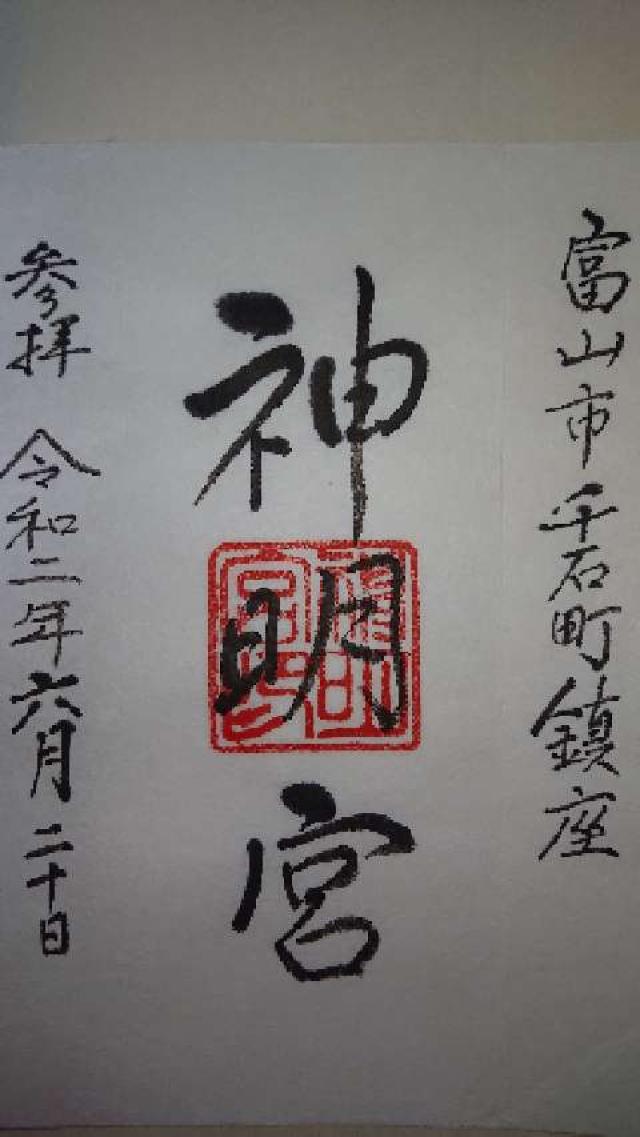 富山市千石町鎮座
神明宮
参拝 令和二年六月二十日